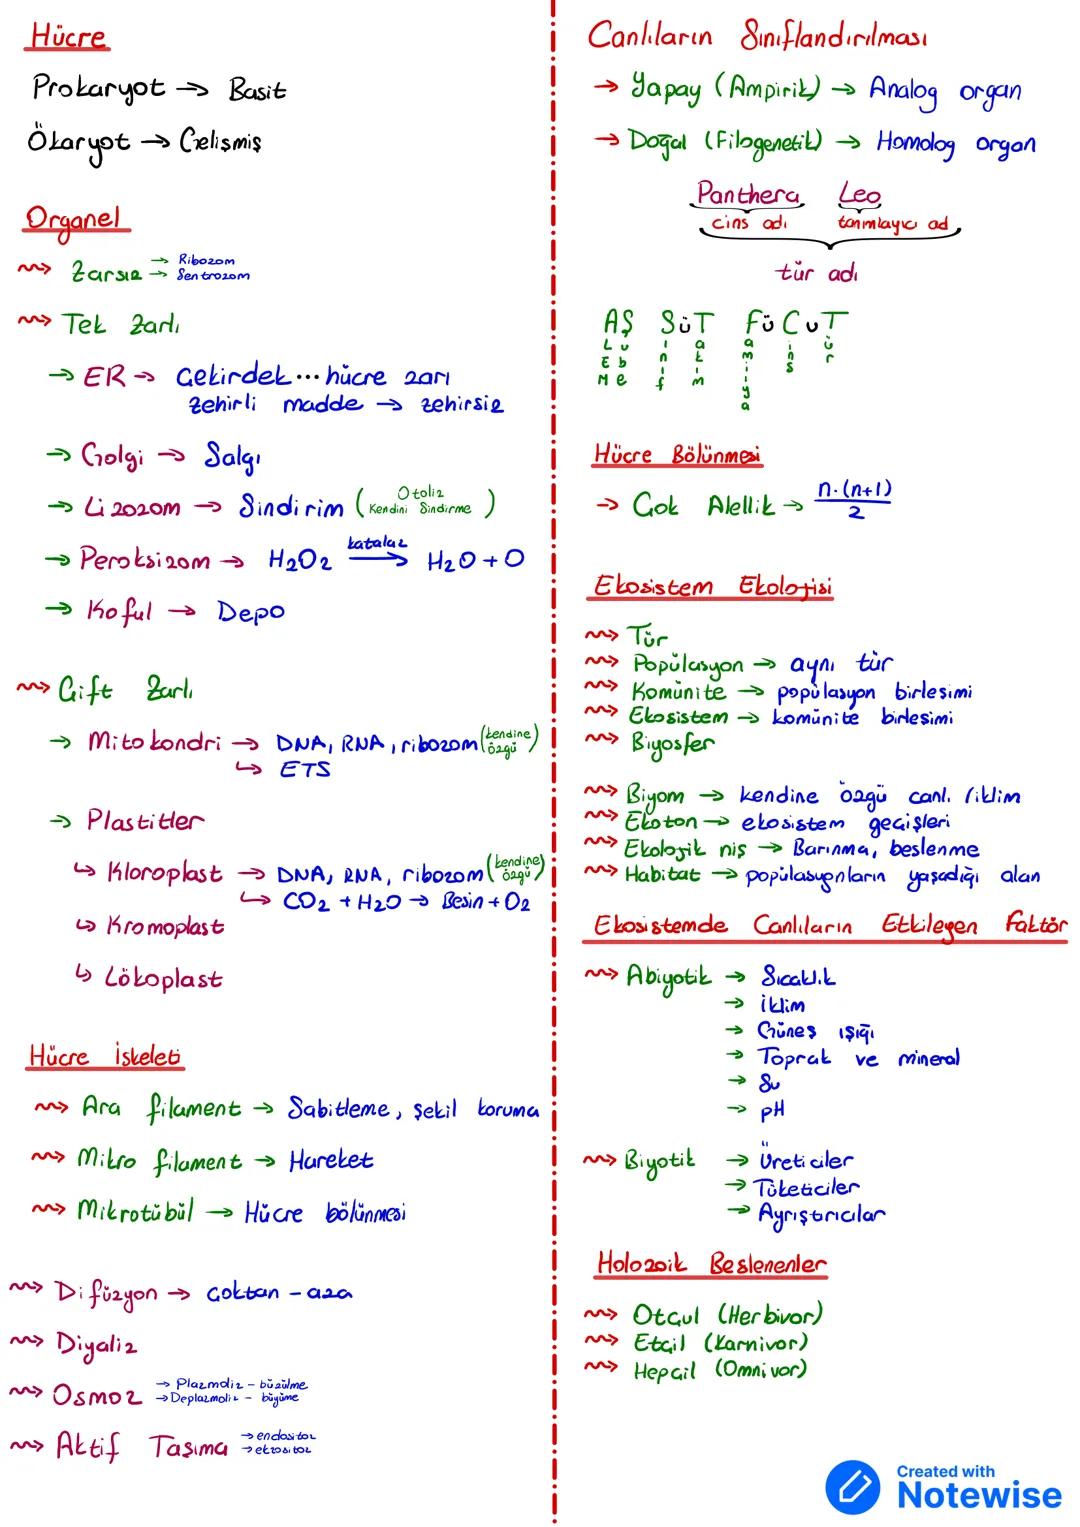 Hücre
Prokaryot → Basit
Ökaryot → Gelişmiş
Organel
Zarsız → Ribozom
→ Sentrozom
Tek Zarlı
→ ER → Çekirdek ... hücre zarı
zehirli madde → zehirsiz
→ Golgi → Salgı
→ Lizozom → Sindirim ( Otoliz
Kendini Sindirme )
→ Peroksizom → H₂O₂ katalaz → H₂O + O
→ Koful → Depo
Çift Zarlı
→ Mitokondri → DNA, RNA, ribozom (kendine özgü)
↳ ETS
→ Plastitler
↳ Kloroplast → DNA, RNA, ribozom (kendine özgü)
↳ CO₂ + H₂O → Besin + O₂
↳ Kromoplast
↳ Lökoplast
Hücre İskeleti
Ara filament → Sabitleme, şekil koruma
Mikro filament → Hareket
Mikrotübül → Hücre bölünmesi
Difüzyon → çoktan - aza
Diyaliz
Osmoz → Plazmoliz - büzülme
→ Deplazmoliz - büyüme
Aktif Taşıma → endositoz
→ ekzositoz
Canlıların Sınıflandırılması
→ Yapay (Ampirik) → Analog organ
→ Doğal (Filogenetik) → Homolog organ
Panthera Leo
cins adı tanımlayıcı ad
tür adı
AŞ SüT FüCuT
ALEM Şube Sınıf Takım Familya Cins Tür
Hücre Bölünmesi
→ Çok Alellik → n.(n+1)
2
Ekosistem Ekolojisi
Tür
Popülasyon → aynı tür
Komünite → popülasyon birleşimi
Ekosistem → komünite birleşimi
Biyosfer
Biyom → kendine özgü canlı /iklim
Ekoton → ekosistem geçişleri
Ekolojik niş → Barınma, beslenme
Habitat → popülasyonların yaşadığı alan
Ekosistemde Canlıların Etkileyen Faktör
Abiyotik → Sıcaklık
→ iklim
→ Güneş ışığı
→ Toprak ve mineral
→ Su
→ pH
Biyotik → Üreticiler
→ Tüketiciler
→ Ayrıştırıcılar
Holozoik Beslenenler
Otçul (Herbivor)
Etçil (Karnivor)
Hepçil (Omnivor)
Created with
Notewise